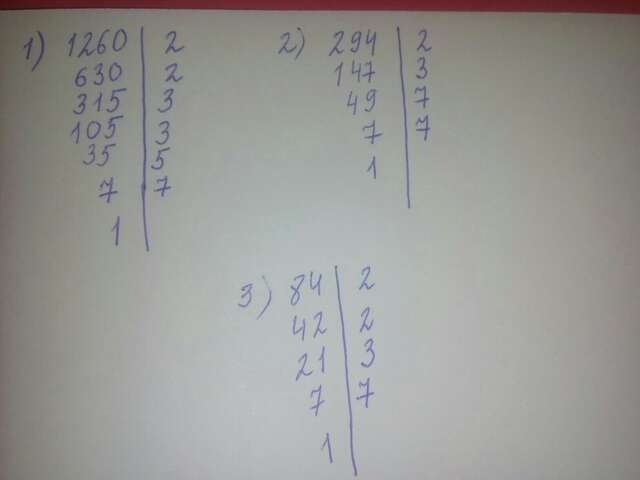 1) 1260 | 2
630 | 2
315 | 3
105 | 3
35 | 5
7 | 7
1 |
2) 294 | 2
147 | 3
49 | 7
7 | 7
1 |
3) 84 | 2
42 | 2
21 | 3
7 | 7
1 |